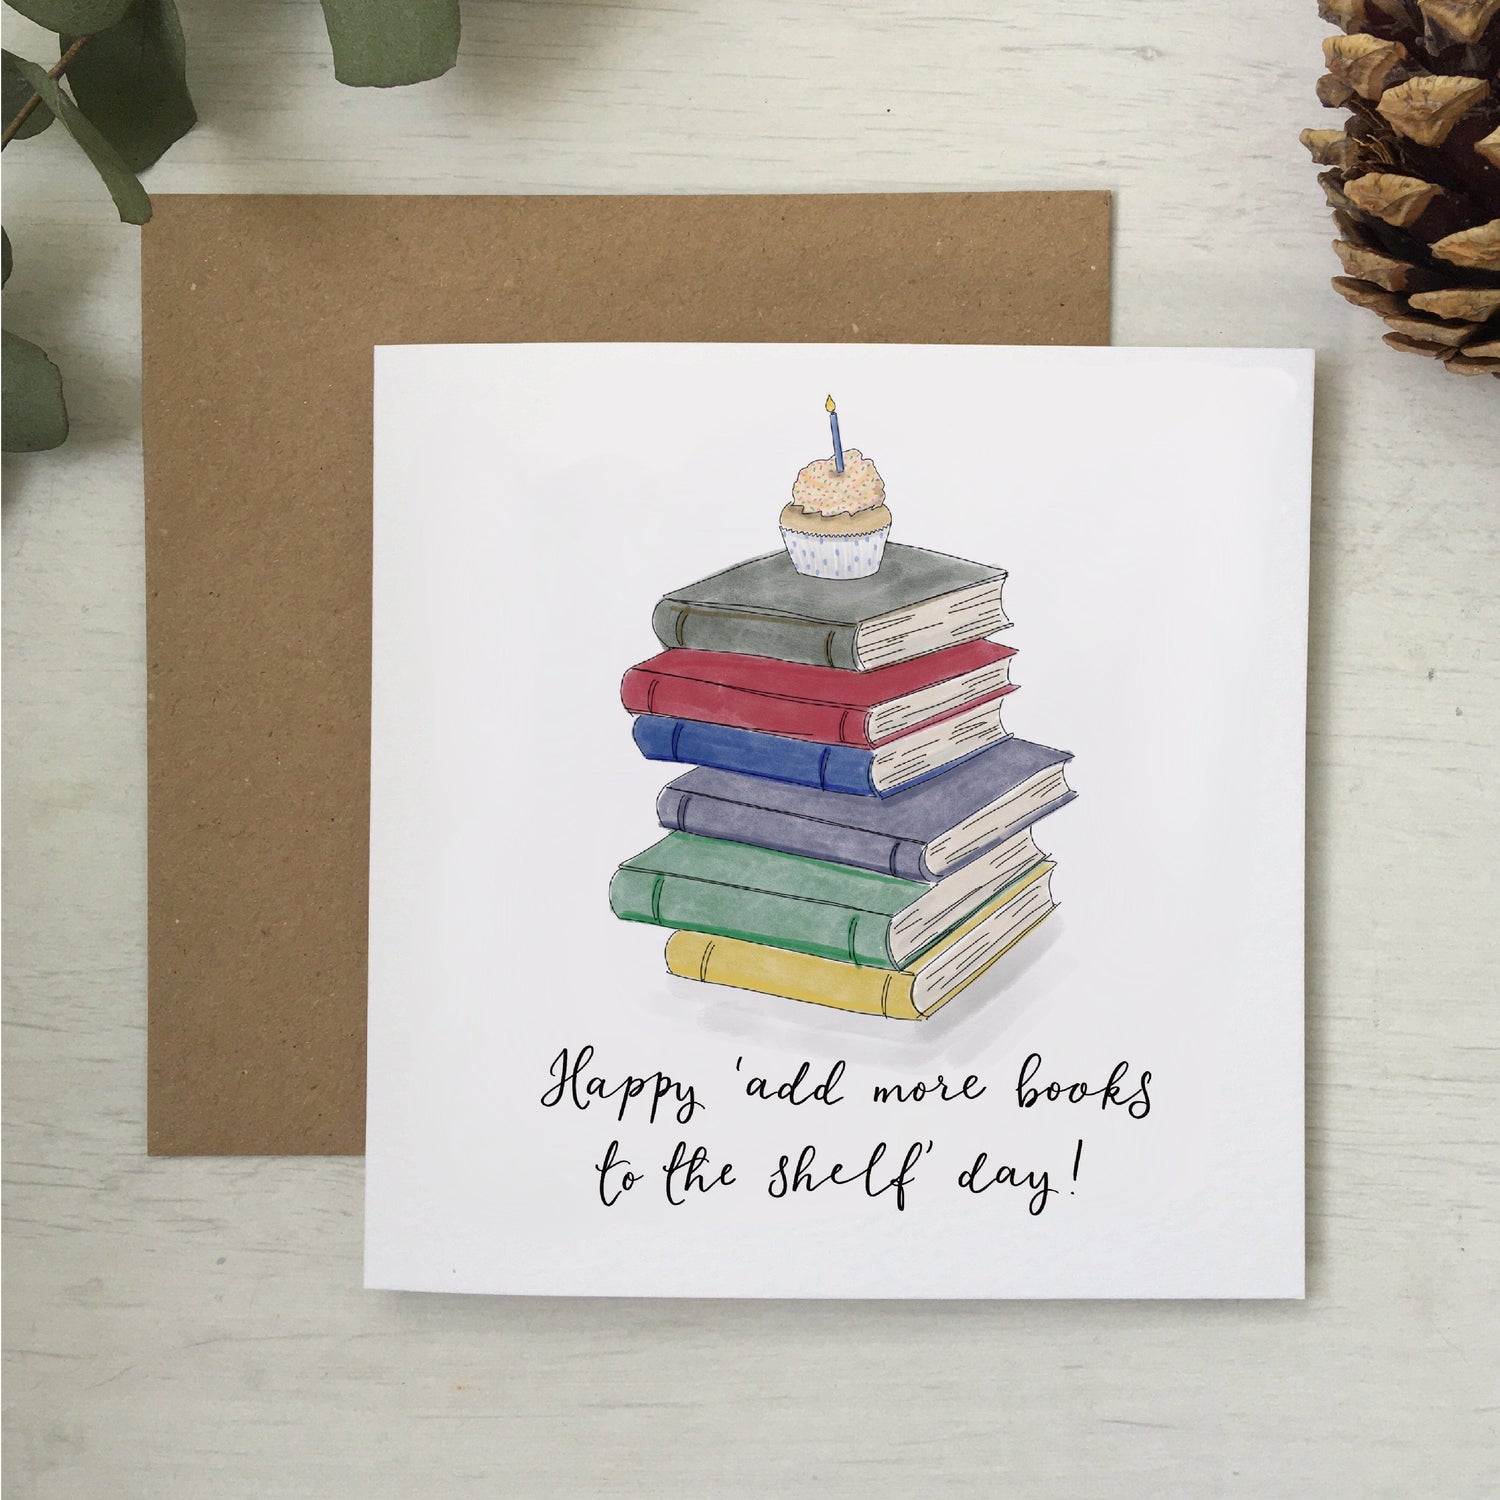 Happy 'add more books
to the shelf' day!